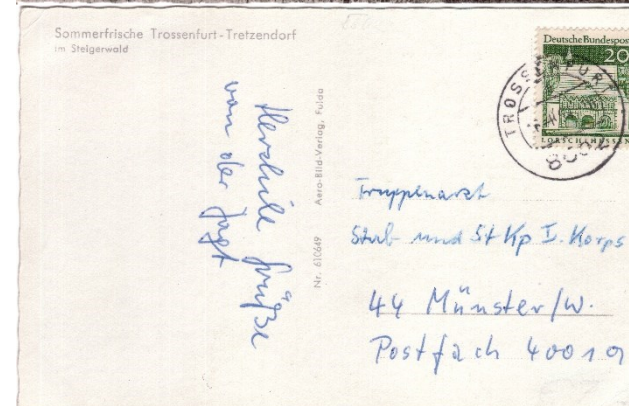 Sommerfrische Trossenfurt-Tretzendorf
im Steigerwald
Herzliche Grüße
von der Jagd
Nr. 610649 Aero-Bild-Verlag, Fulda
Deutsche Bundespost
20
LORSCH/HESSEN
TROSSENFURT
Truppenarzt
Stab- und St Kp I. Korps
44 Münster/W.
Postfach 400 19